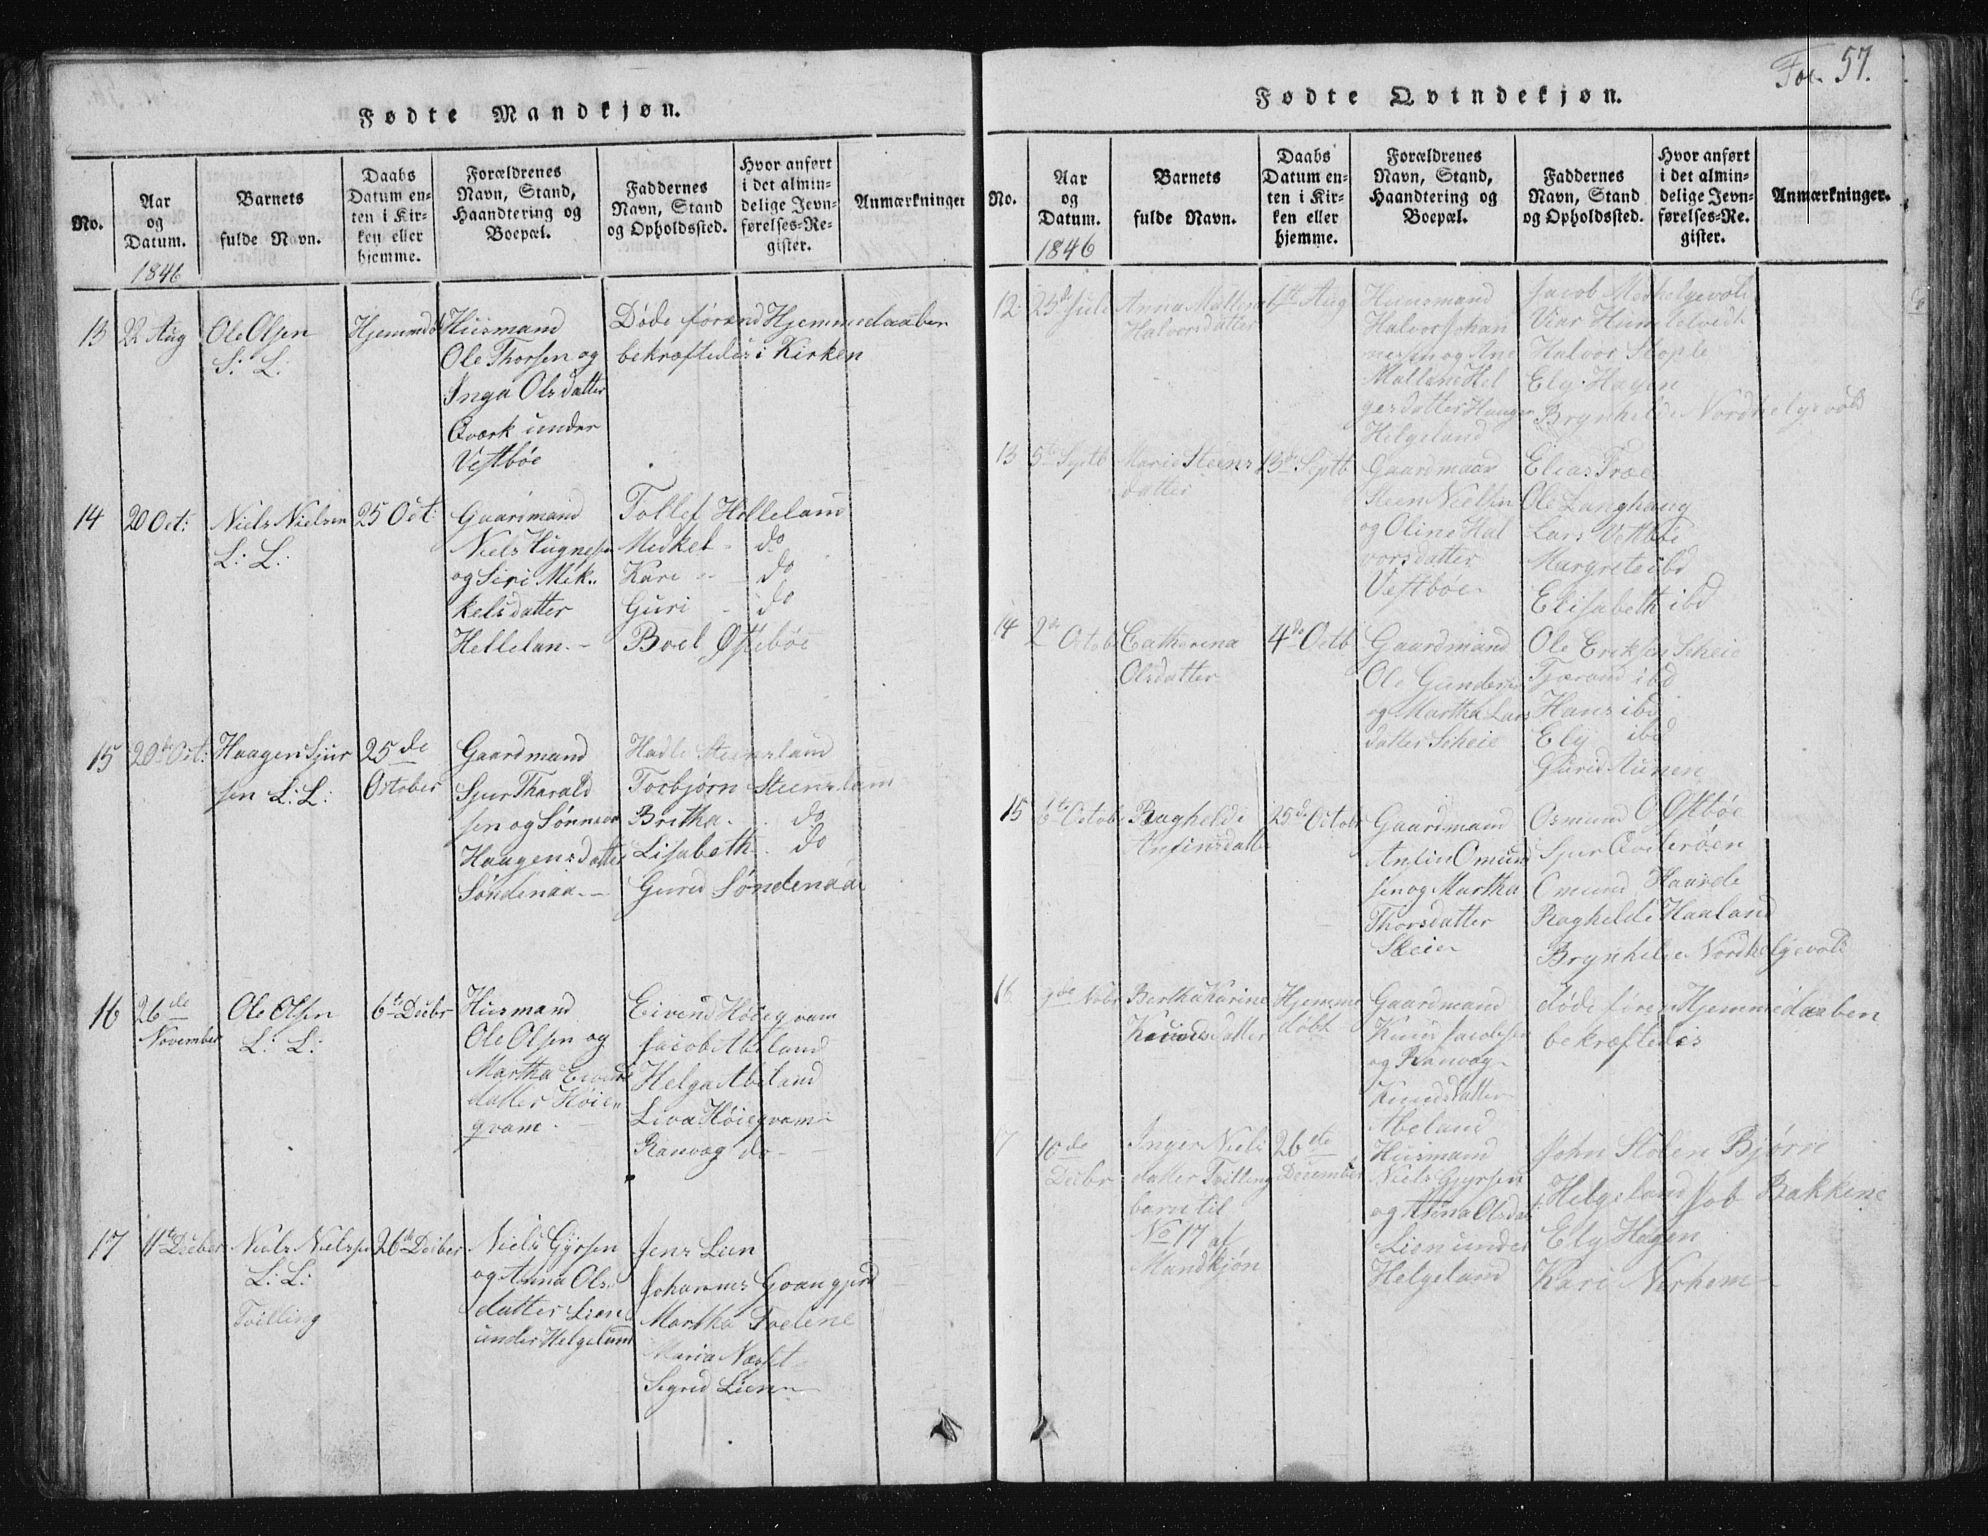 Fødte Mandkjøn.
No.
Aar
og
Datum.
Barnets
fulde Navn.
Daabs
Datum en-
ten i Kir-
ken eller
hjemme.
Forældrenes
Navn, Stand,
Haandtering og
Boepæl.
Faddernes
Navn, Stand
og Opholdssted.
Hvor anført
i det almin-
delige Jevn-
førelses-Re-
gister.
Anmærkninger
1846
13
22 Aug
Ole Olsen
S: L:
Hjemmdøbt
Huusmand
Ole Thorsen og
Inga Olsdatter
Qværk under
Vestbøe
Døde førend Hjemmedaaben
bekræftedes i Kirken
14
20 Oct:
Niels Nielsen
L: L:
25 Oct:
Gaardmand
Niels
og Siri Mik-
kelsdatter
Hellelan. -
Tollef Helleland
Meckel - do
Kari - - do
Guri - do
Boel Østebøe
15
20de Oct:
Haagen Sjur
sen L: L:
25 de
October
Gaardmand
Sjur Tharald
sen og Sønneva
Haagensdatter
Søndenaa. -
Hadle Steensland
Torbjørn Steensland
Britha - . do
Lisabeth . do
Gurid Søndenaae
16
26 de
November
Ole Olsen
L: L:
6te Decbr
Husmand
Ole Olsen og
Martha Eivinds
datter Høie-
qvam. -
Eivind Høieqvam
Jacob Abeland
Helga Abeland
Liva Høieqvam
Ranvag do -
17
11te Deeber
Niels Nielssen
L: L:
Tvilling
26de Decber
Niels Gyrsen
og Anna Ols-
datter Lien
under Helgeland
Jens Leen
Johannes Goangjerd
Martha Stoelene
Maria Næsset
Sigrid Lien
Fol. 57.
Fødte Qvindekjøn.
No.
Aar
og
Datum.
Barnets
fulde Navn.
Daabs
Datum en-
ten i Kir-
ken eller
hjemme.
Forældrenes
Navn, Stand,
Haandtering og
Boepæl.
Faddernes
Navn, Stand
og Opholdssted.
Hvor anført
i det almin-
delige Jevn-
førelses-Re-
gister.
Anmærkninger.
1846
12
25de Juli
Anna Mallena
Halvorsdatter
1te Aug
Huusmand
Halvor Johan
nessen og Ane
Mallene Hel
gesdatter Haugen
Helgeland
Jacob Nerhelgevold
Viar Humletvedt
Halvor Stople
Ely Hagen
Brynhelde Nordhelgevold
13
5te Septb
Marie Steens
datter
13de Septb
Gaardmand
Steen Nielsen
og Oline Hal
vorsdatter
Vestbøe
Elias Træe
Ole Langhaug
Lars Vestbøe
Margrete ibd
Elisabeth ibd
14
2de Octob
Catharina
Olsdatter
4de Octb
Gaardmand
Ole Gundersen
og Martha Lars
datter Scheie
Ole Eriksen Scheie
Tjærand ibd
Hans ibd
Ely ibd
Gurid Aunen
15
6te Octob
Raghelde
Anfinsdatter
25de Octobr
Gaardmand
Anfin Omund
sen og Martha
Thorsdatter
Skeie
Osmund O Østbøe
Sjur Qviterøen
Omund Haarde
Raghelde Haaland
Brynhelde Nordhelgevold
16
9de Nobr
Bertha Karine
Knudsdatter
Hjemme
døbt
Gaardmand
Knud Jacobsen
og Ranvag
Knudsdatter
Abeland
døde føren Hjemmedaaben
bekræftedes
17
10 de
Decbr
Inger Niels
datter Tvilling
barn til
No 17 af
Mandkjøn
26 de
December
Huusmand
Niels Gyrsen
og Anna Olsdat:
Lien under
Helgeland
John Stolen Bjørn
Helgeland Job Bakkene
Ely Hagen
Kari Nerhem